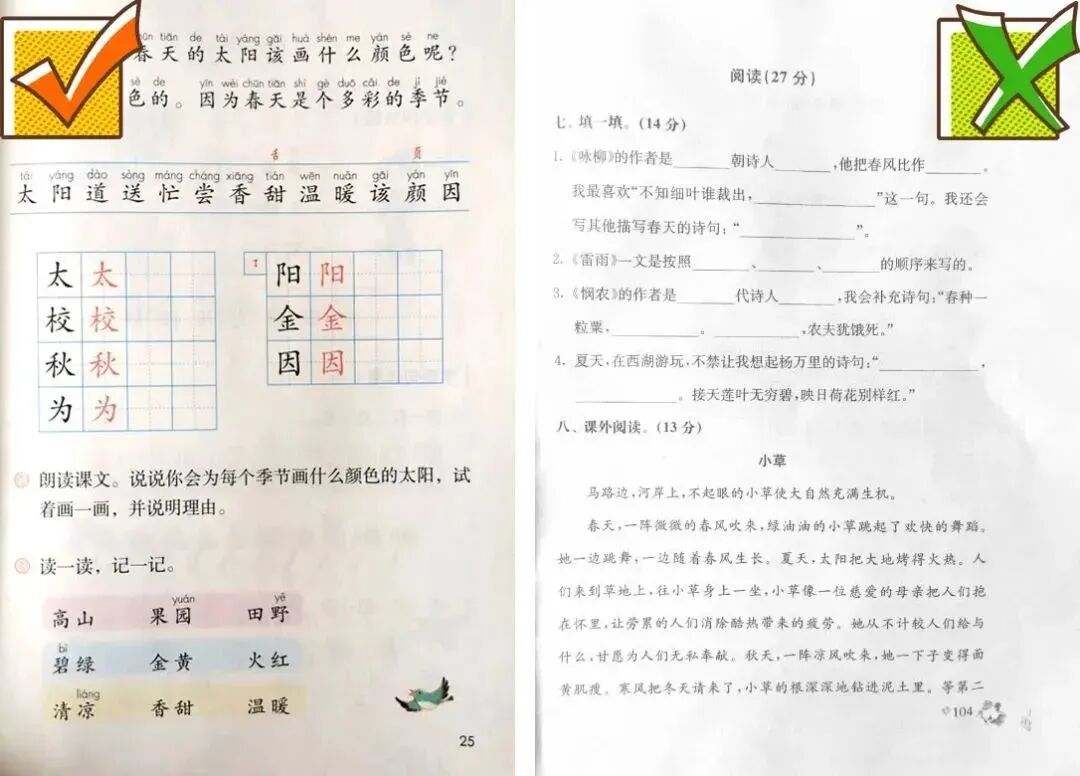 chūn tiān de tài yáng gāi huà shén me yán sè ne
春天的太阳该画什么颜色呢？
sè de yīn wèi chūn tiān shì gè duō cǎi de jì jié
色的。因为春天是个多彩的季节。
舌 页
tài yáng dào sòng máng cháng xiāng tián wēn nuǎn gāi yán yīn
太 阳 道 送 忙 尝 香 甜 温 暖 该 颜 因
太 太
校 校
秋 秋
为 为
阳 阳
金 金
因 因
朗读课文。说说你会为每个季节画什么颜色的太阳，试
着画一画，并说明理由。
读一读，记一记。
yuán yě
高山 果园 田野
bì
碧绿 金黄 火红
liáng
清凉 香甜 温暖
25
阅读(27分)
七、填一填。(14分)
1.《咏柳》的作者是______朝诗人______，他把春风比作______。
我最喜欢“不知细叶谁裁出，____________”这一句。我还会
写其他描写春天的诗句：“____________”。
2.《雷雨》一文是按照______、______、______的顺序来写的。
3.《悯农》的作者是______代诗人______，我会补充诗句：“春种一
粒粟，_________。_________，农夫犹饿死。”
4. 夏天，在西湖游玩，不禁让我想起杨万里的诗句：“_________，
_________。接天莲叶无穷碧，映日荷花别样红。”
八、课外阅读。(13分)
小草
马路边，河岸上，不起眼的小草使大自然充满生机。
春天，一阵微微的春风吹来，绿油油的小草跳起了欢快的舞蹈。
她一边跳舞，一边随着春风生长。夏天，太阳把大地烤得火热。人
们来到草地上，往小草身上一坐，小草像一位慈爱的母亲把人们抱
在怀里，让劳累的人们消除酷热带来的疲劳。她从不计较人们给与
什么，甘愿为人们无私奉献。秋天，一阵凉风吹来，她一下子变得面
黄肌瘦。寒风把冬天请来了，小草的根深深地钻进泥土里。等第二
104